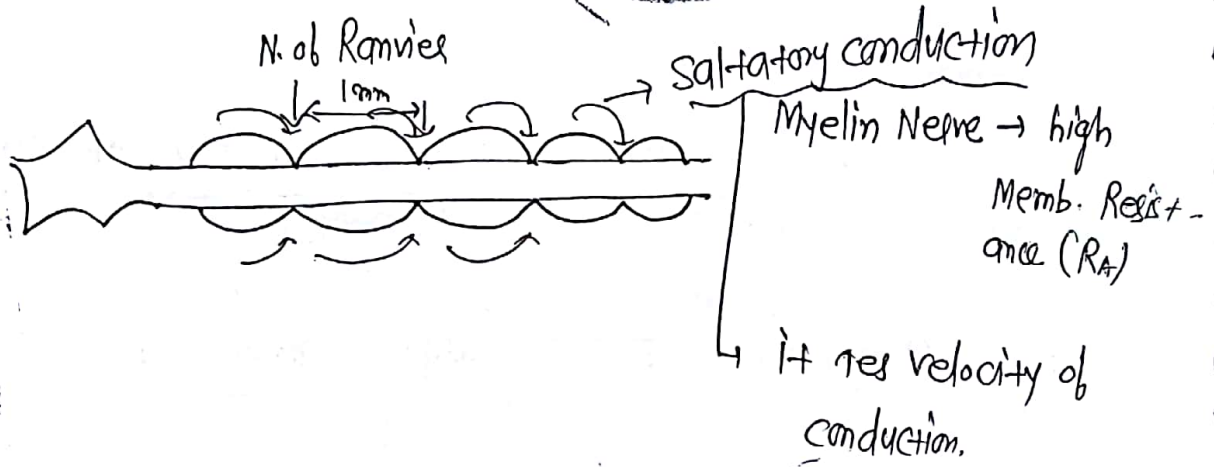 N. of Ranvier
1mm
Saltatory conduction
Myelin Nerve → high
Memb. Resist-
ance (RA)
it ↑es velocity of
conduction.